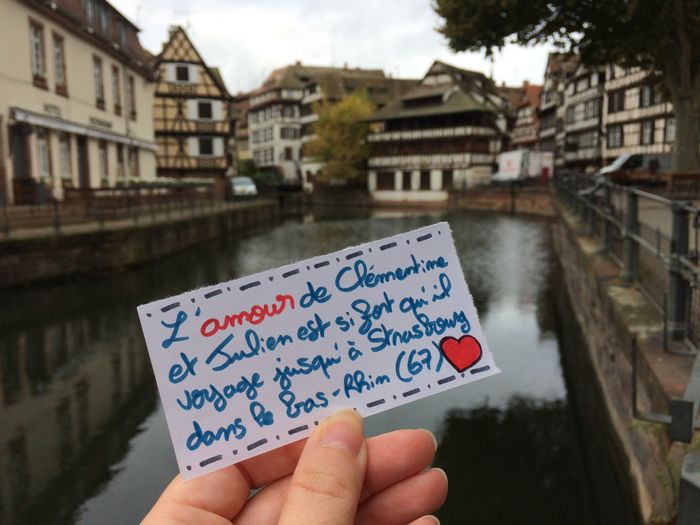 L'amour de Clémentine
et Julien est si fort qu'il
voyage jusqu'à Strasbourg
dans le Bas-Rhin (67)
HOTEL